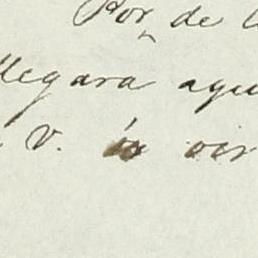 Por de
llegara aqu
V. oir